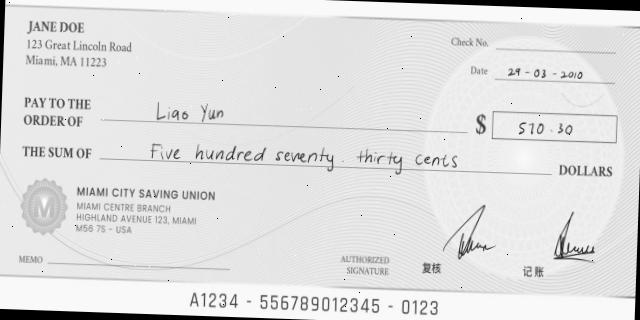 JANE DOE
123 Great Lincoln Road
Miami, MA 11223
Check No.
Date 29-03-2010
PAY TO THE
ORDER OF Liao Yun
$ 570.30
THE SUM OF Five hundred seventy. thirty cents DOLLARS
M
MIAMI CITY SAVING UNION
MIAMI CENTRE BRANCH
HIGHLAND AVENUE 123, MIAMI
M56 7S - USA
MEMO
AUTHORIZED
SIGNATURE
复核
记账
A1234 - 556789012345 - 0123